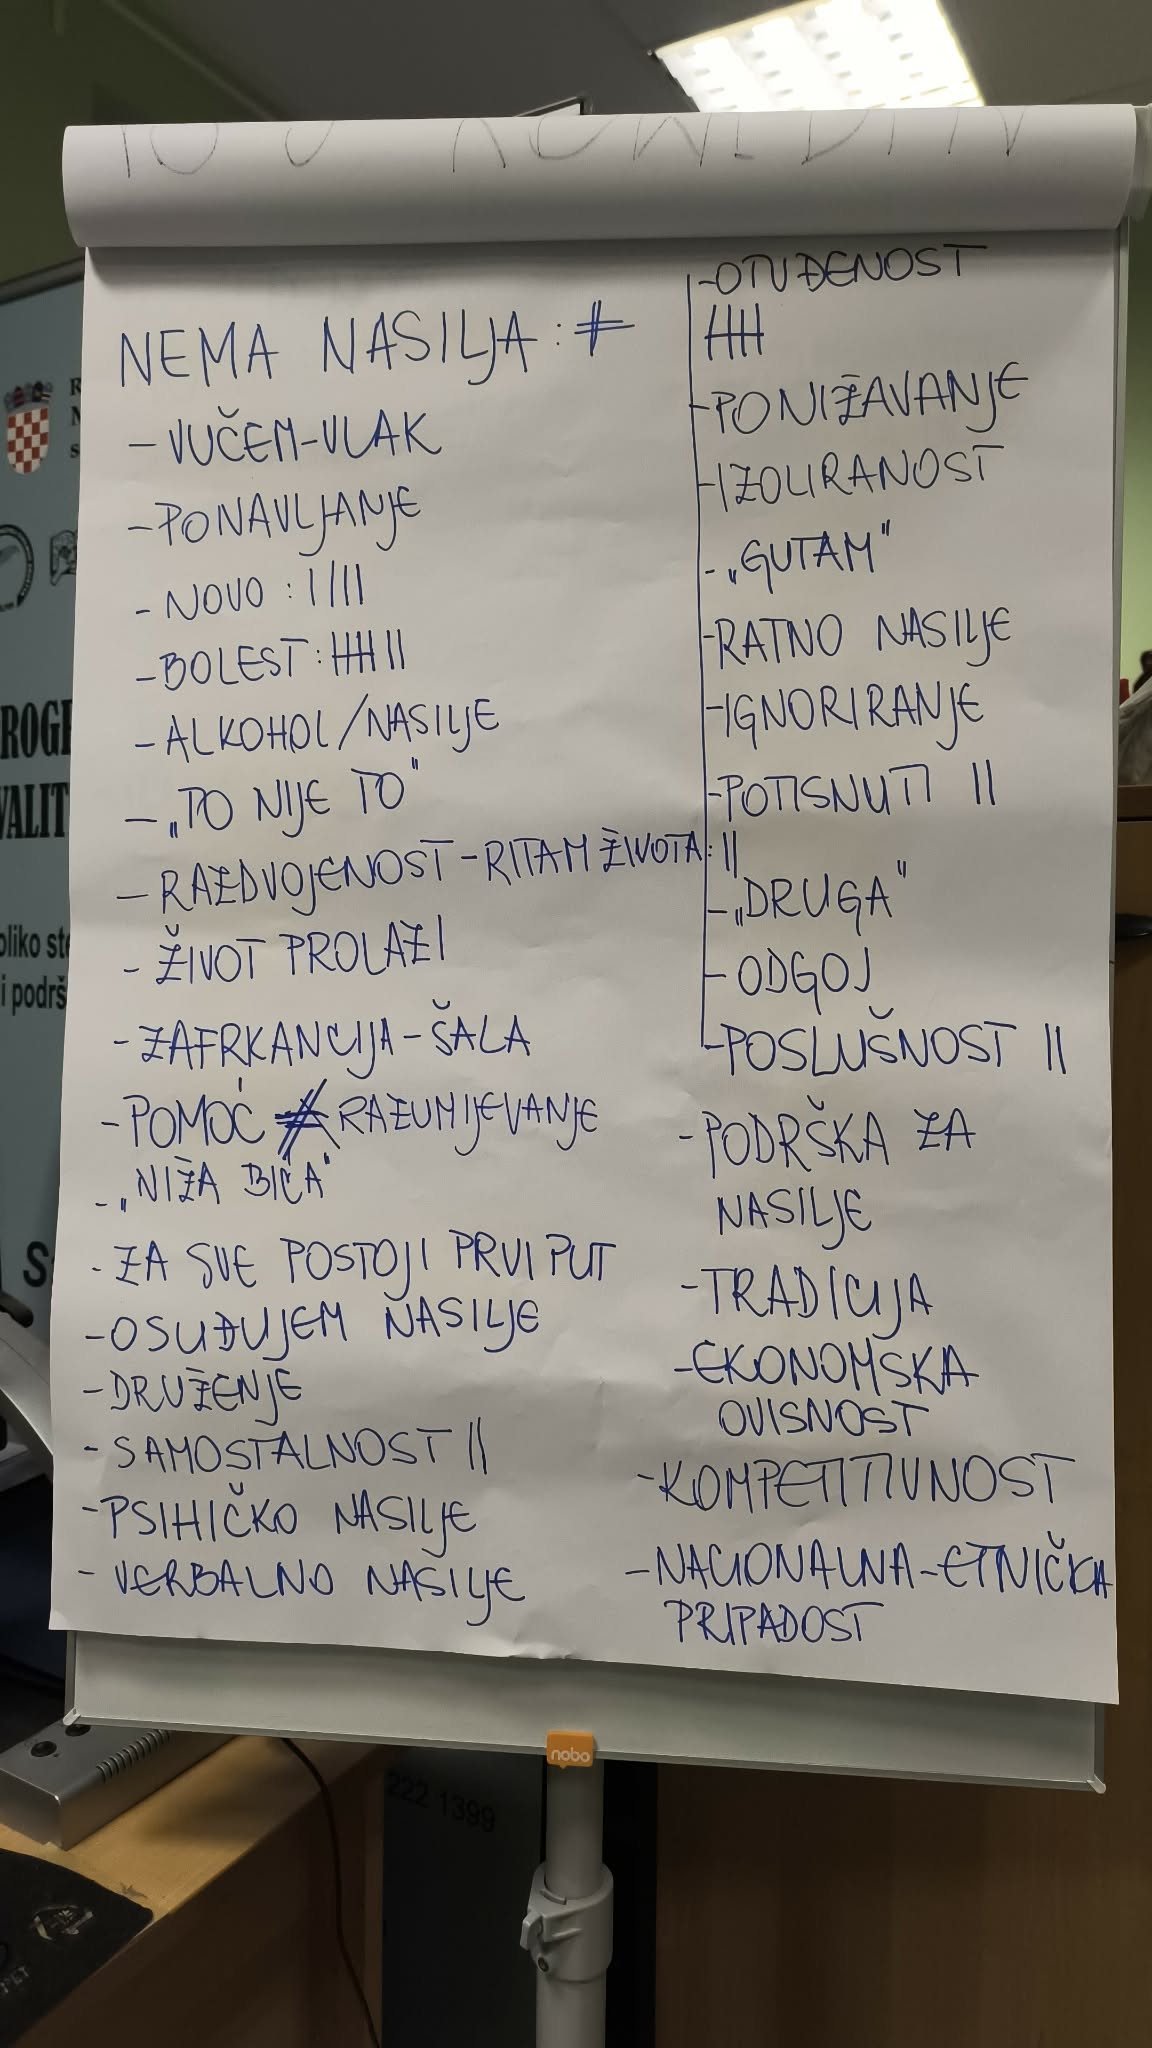 NEMA NASILJA: ≠
- VUČEM-VLAK
- PONAVLJANJE
- NOVO: I/II
- BOLEST: HHII
- ALKOHOL/NASILJE
- „TO NIJE TO"
- RAZDVOJENOST - RITAM ŽIVOTA: II
- ŽIVOT PROLAZI
- ZAFRKANCIJA - ŠALA
- POMOĆ ≠ RAZUMIJEVANJE
- „NIŽA BIĆA"
- ZA SVE POSTOJI PRVI PUT
- OSUĐUJEM NASILJE
- DRUŽENJE
- SAMOSTALNOST II
- PSIHIČKO NASILJE
- VERBALNO NASILJE
- OTUĐENOST
HH
- PONIŽAVANJE
- IZOLIRANOST
- „GUTAM"
- RATNO NASILJE
- IGNORIRANJE
- POTISNUTI II
- „DRUGA"
- ODGOJ
- POSLUŠNOST II
- PODRŠKA ZA
NASILJE
- TRADICIJA
- EKONOMSKA
OVISNOST
- KOMPETITIVNOST
- NACIONALNA-ETNIČKA
PRIPADOST
nobo
222 1399